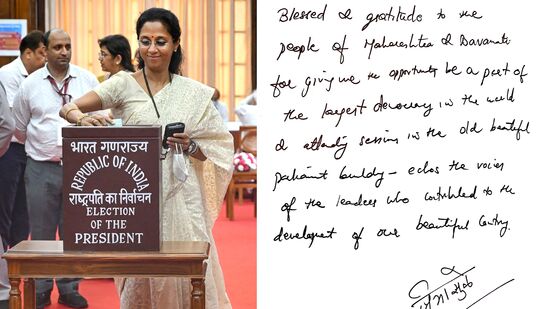 भारत गणराज्य
REPUBLIC OF INDIA
राष्ट्रपति का निर्वाचन
ELECTION
OF THE
PRESIDENT
Blessed & gratitude to the
people of Maharashtra & Baramati
for giving me the opportunity be a part of
the largest democracy in the world
& attending session in the old beautiful
parliament building - echos the voices
of the leaders who contributed to the
development of our beautiful country.